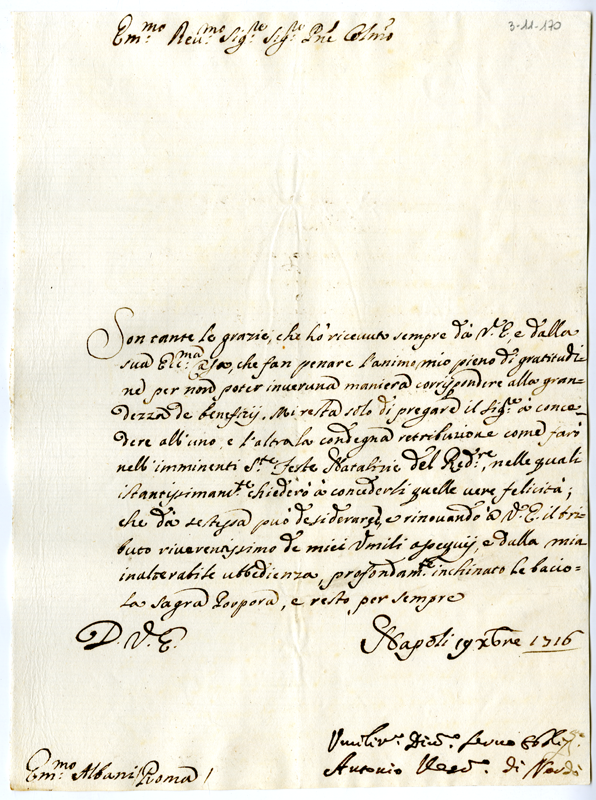 3-11-170
Em.mo Reu.mo Sig.re Sig.re Pne Colmo
Son tante le grazie, che hò riceuuto sempre dà V. E, e dalla
sua Ecc.ma Casa, che fan penare l'animo mio pieno di gratitudi=
ne per non poter in veruna maniera corrispondere alla gran=
dezza de beneficij. Mi resta solo di pregare il Sig.re à conce=
dere all'uno, e l'altra la condegna retribuzione come farò
nell'imminenti S.te Feste Natalizie del Red.re, nelle quali
istantissimam.te chiederò à concederli quelle vere felicità,
che dà se stessa può desiderarsi, e rinouando à V. E. il tri=
buto riuerentissimo de miei Vmili ossequij, e dalla mia
inalterabile ubbedienza, profondam.te inchinato le bacio
la sagra Porpora, e resto per sempre
D. V. E.
Napoli 19 Xbre 1716
Vmiliss.o Diu.o Seruo Obblig.o
Antonio Vesc.o di Nardò
Em.mo Albani Roma